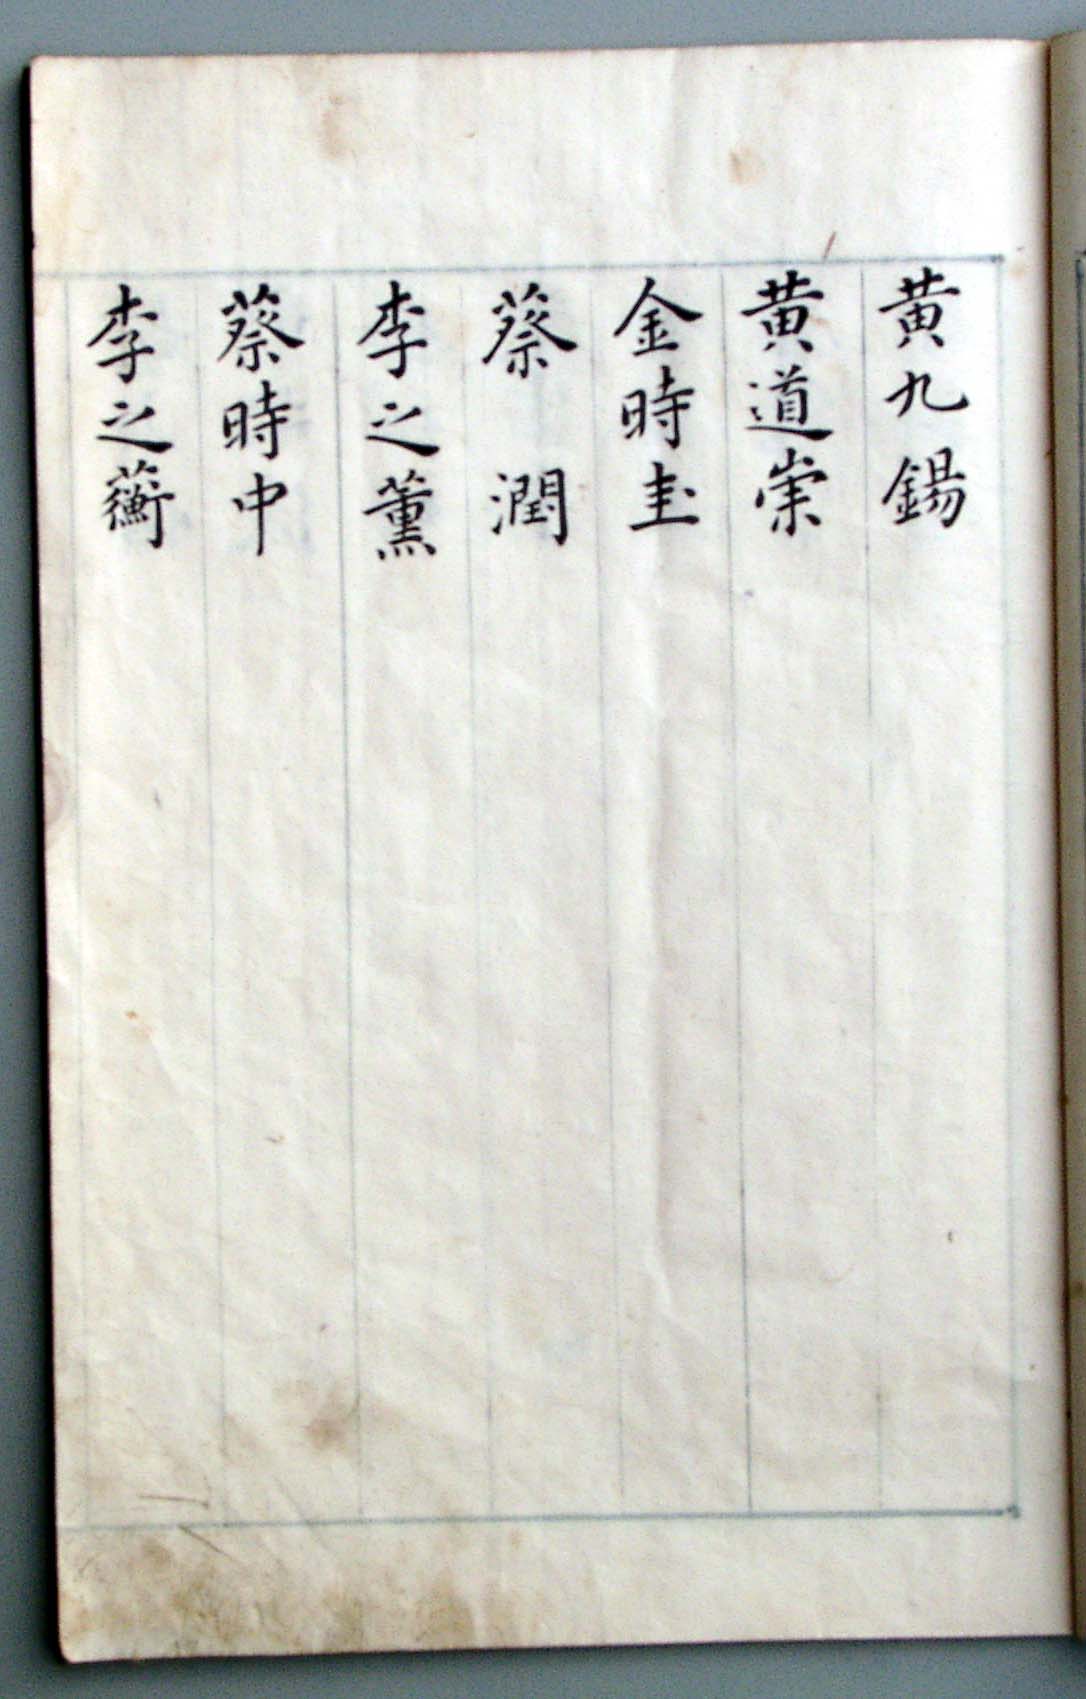 黄九錫
黄道崇
金時圭
蔡潤
李之薰
蔡時中
李之蘅